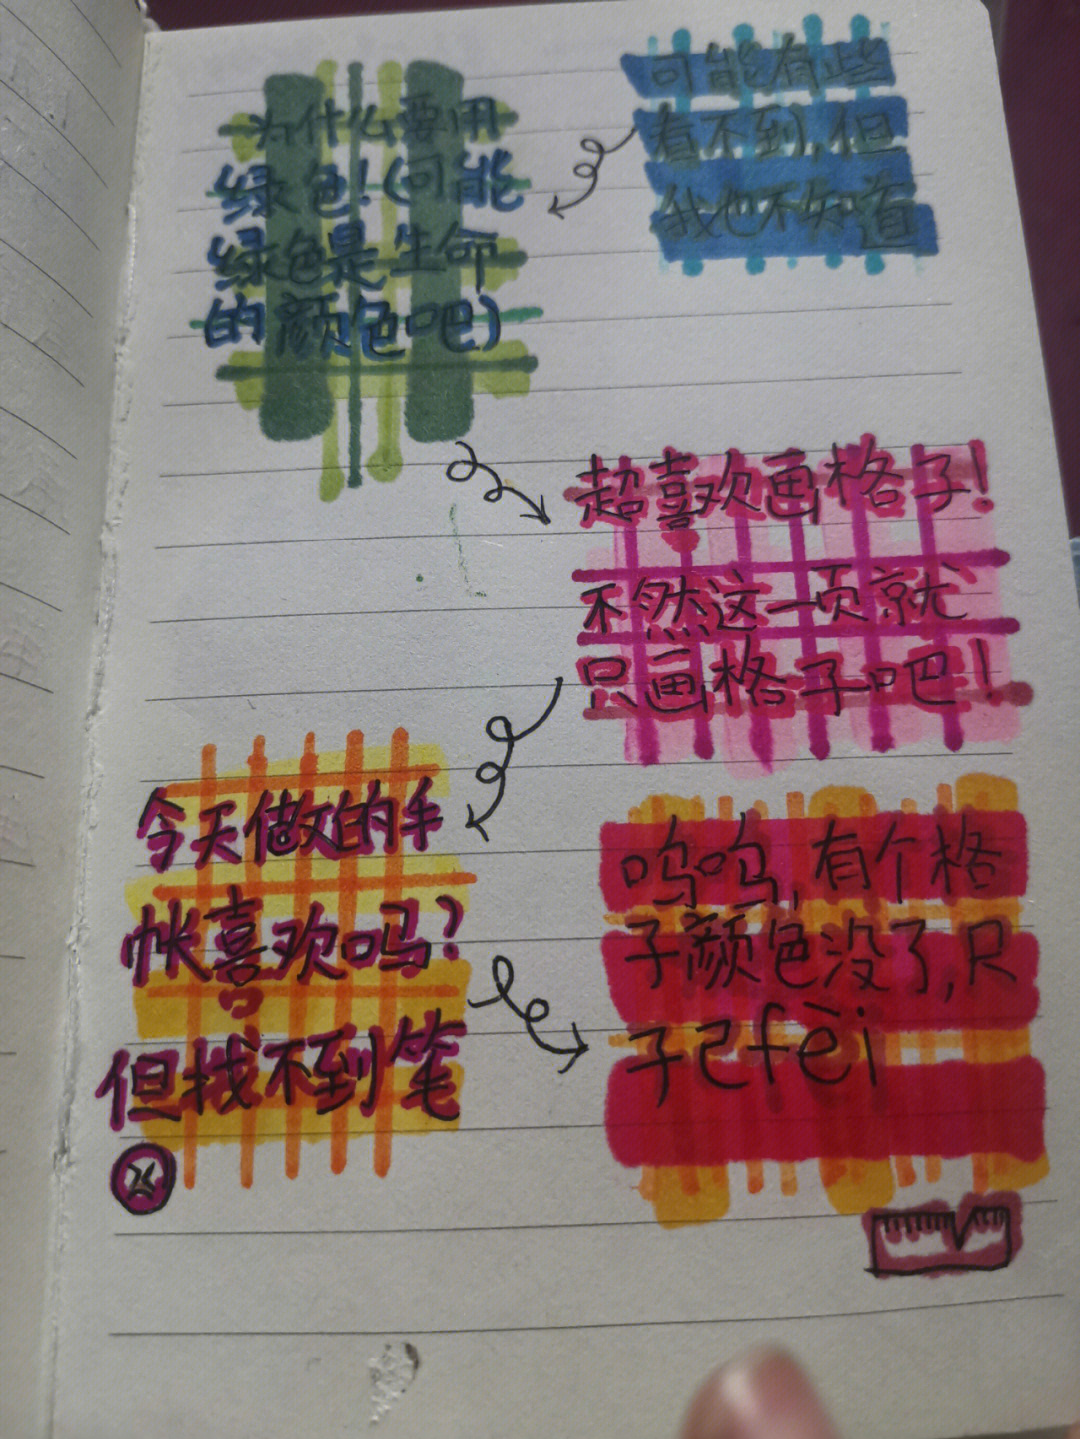 可能有些
看不到,但
我也不知道
为什么要用
绿色!(可能
绿色是生命
的颜色吧)
超喜欢画格子!
不然这一页就
只画格子吧!
今天做的手
帐喜欢吗?
但找不到笔
呜呜,有个格
子颜色没了,尺
子己fèi